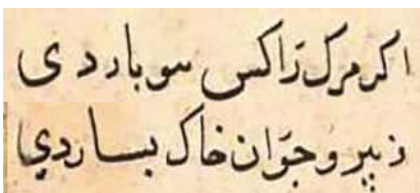 اکر مرک زاکس سو بارد ی
ز پیر و جوان خاک بسپاردی